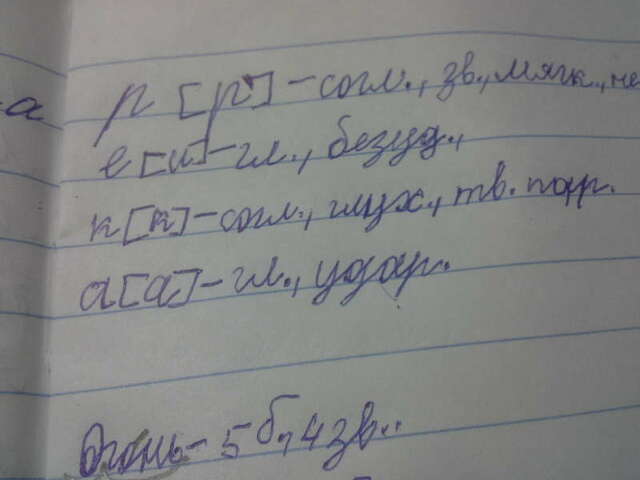 -а р [р'] - согл., зв., мягк., не
е [и] - гл., безуд.,
к [к] - согл., глух., тв. парн.
а [а] - гл., удар.
Огонь - 5 б, 4 зв..